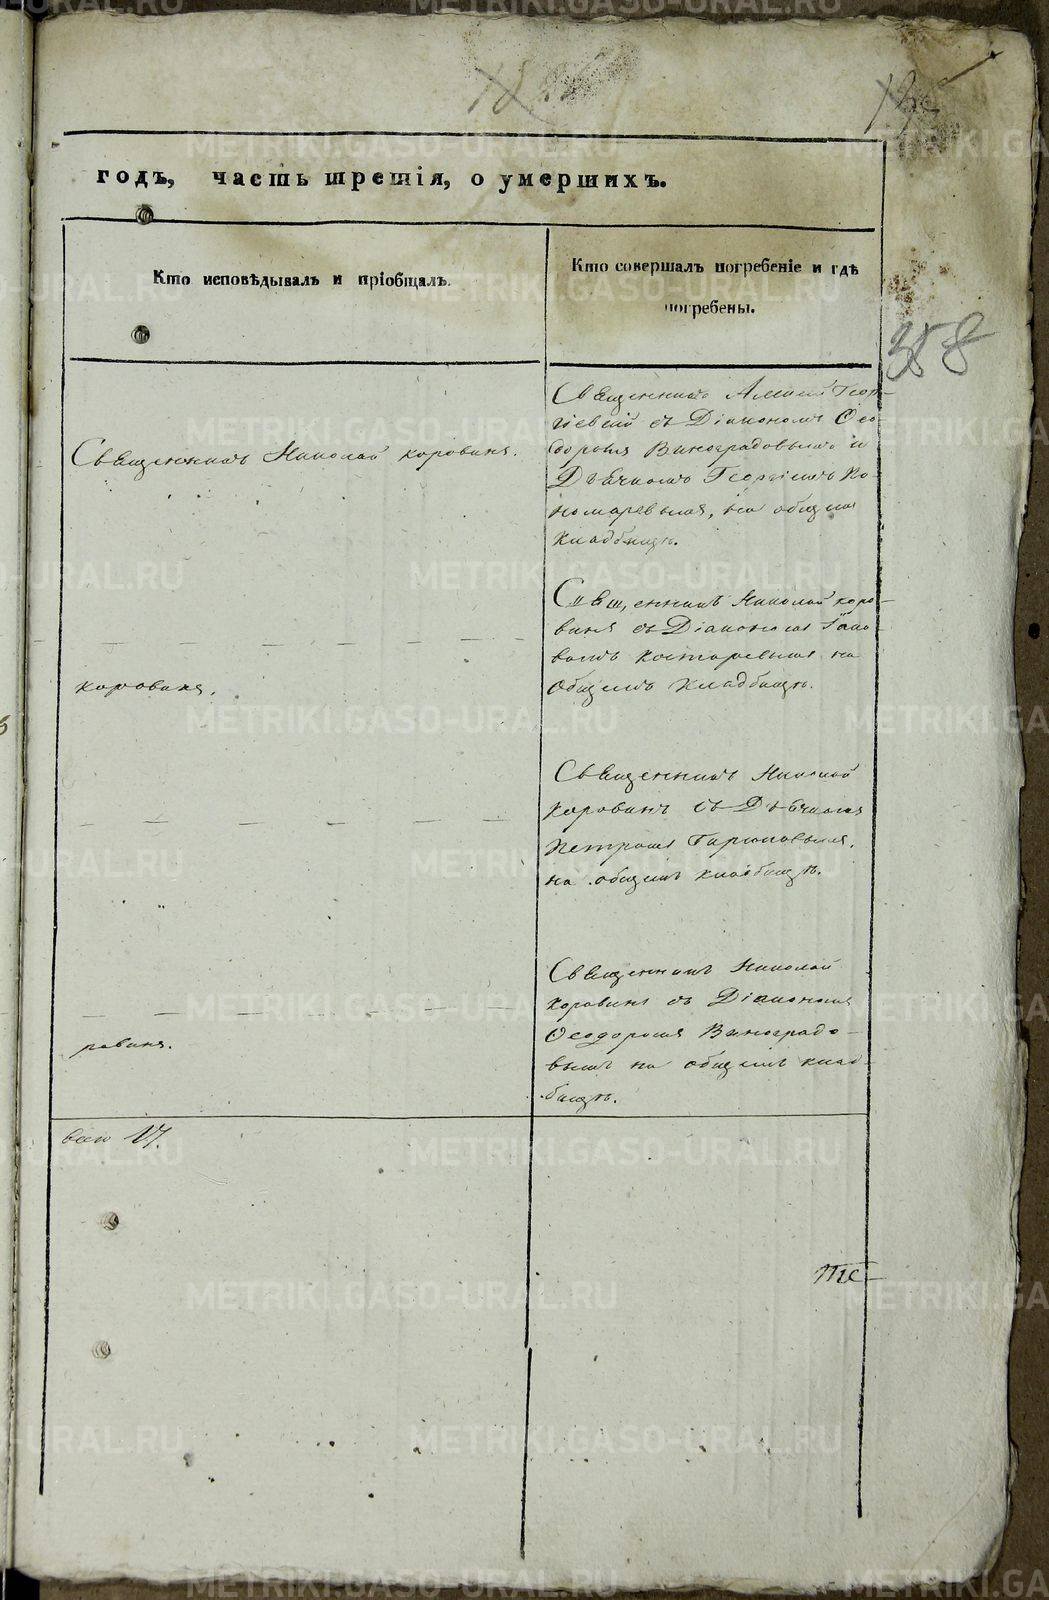 годъ, часть третія, о умершихъ.
Кто исповѣдывалъ и пріобщалъ.
Кто совершалъ погребеніе и гдѣ
погребены.
358
Священникъ Николай Коровинъ.
Священникъ Алексій Геор-
гіевскій съ Діакономъ Ѳео-
доромъ Виноградовымъ и
Дьячкомъ Георгіемъ По-
номаревымъ, на общемъ
кладбищѣ.
Священникъ Николай Коро-
винъ съ Діакономъ Іако-
вомъ Костаревымъ на
общемъ кладбищѣ.
Коровинъ.
Священникъ Николай
Коровинъ съ Дьячкомъ
Петромъ
на общемъ кладбищѣ.
Священникъ Николай
Коровинъ съ Діакономъ
Ѳеодоромъ Виноградо-
вымъ на общемъ клад-
бищѣ.
ровинъ.
всего 17.
METRIKI.GASO-URAL.RU